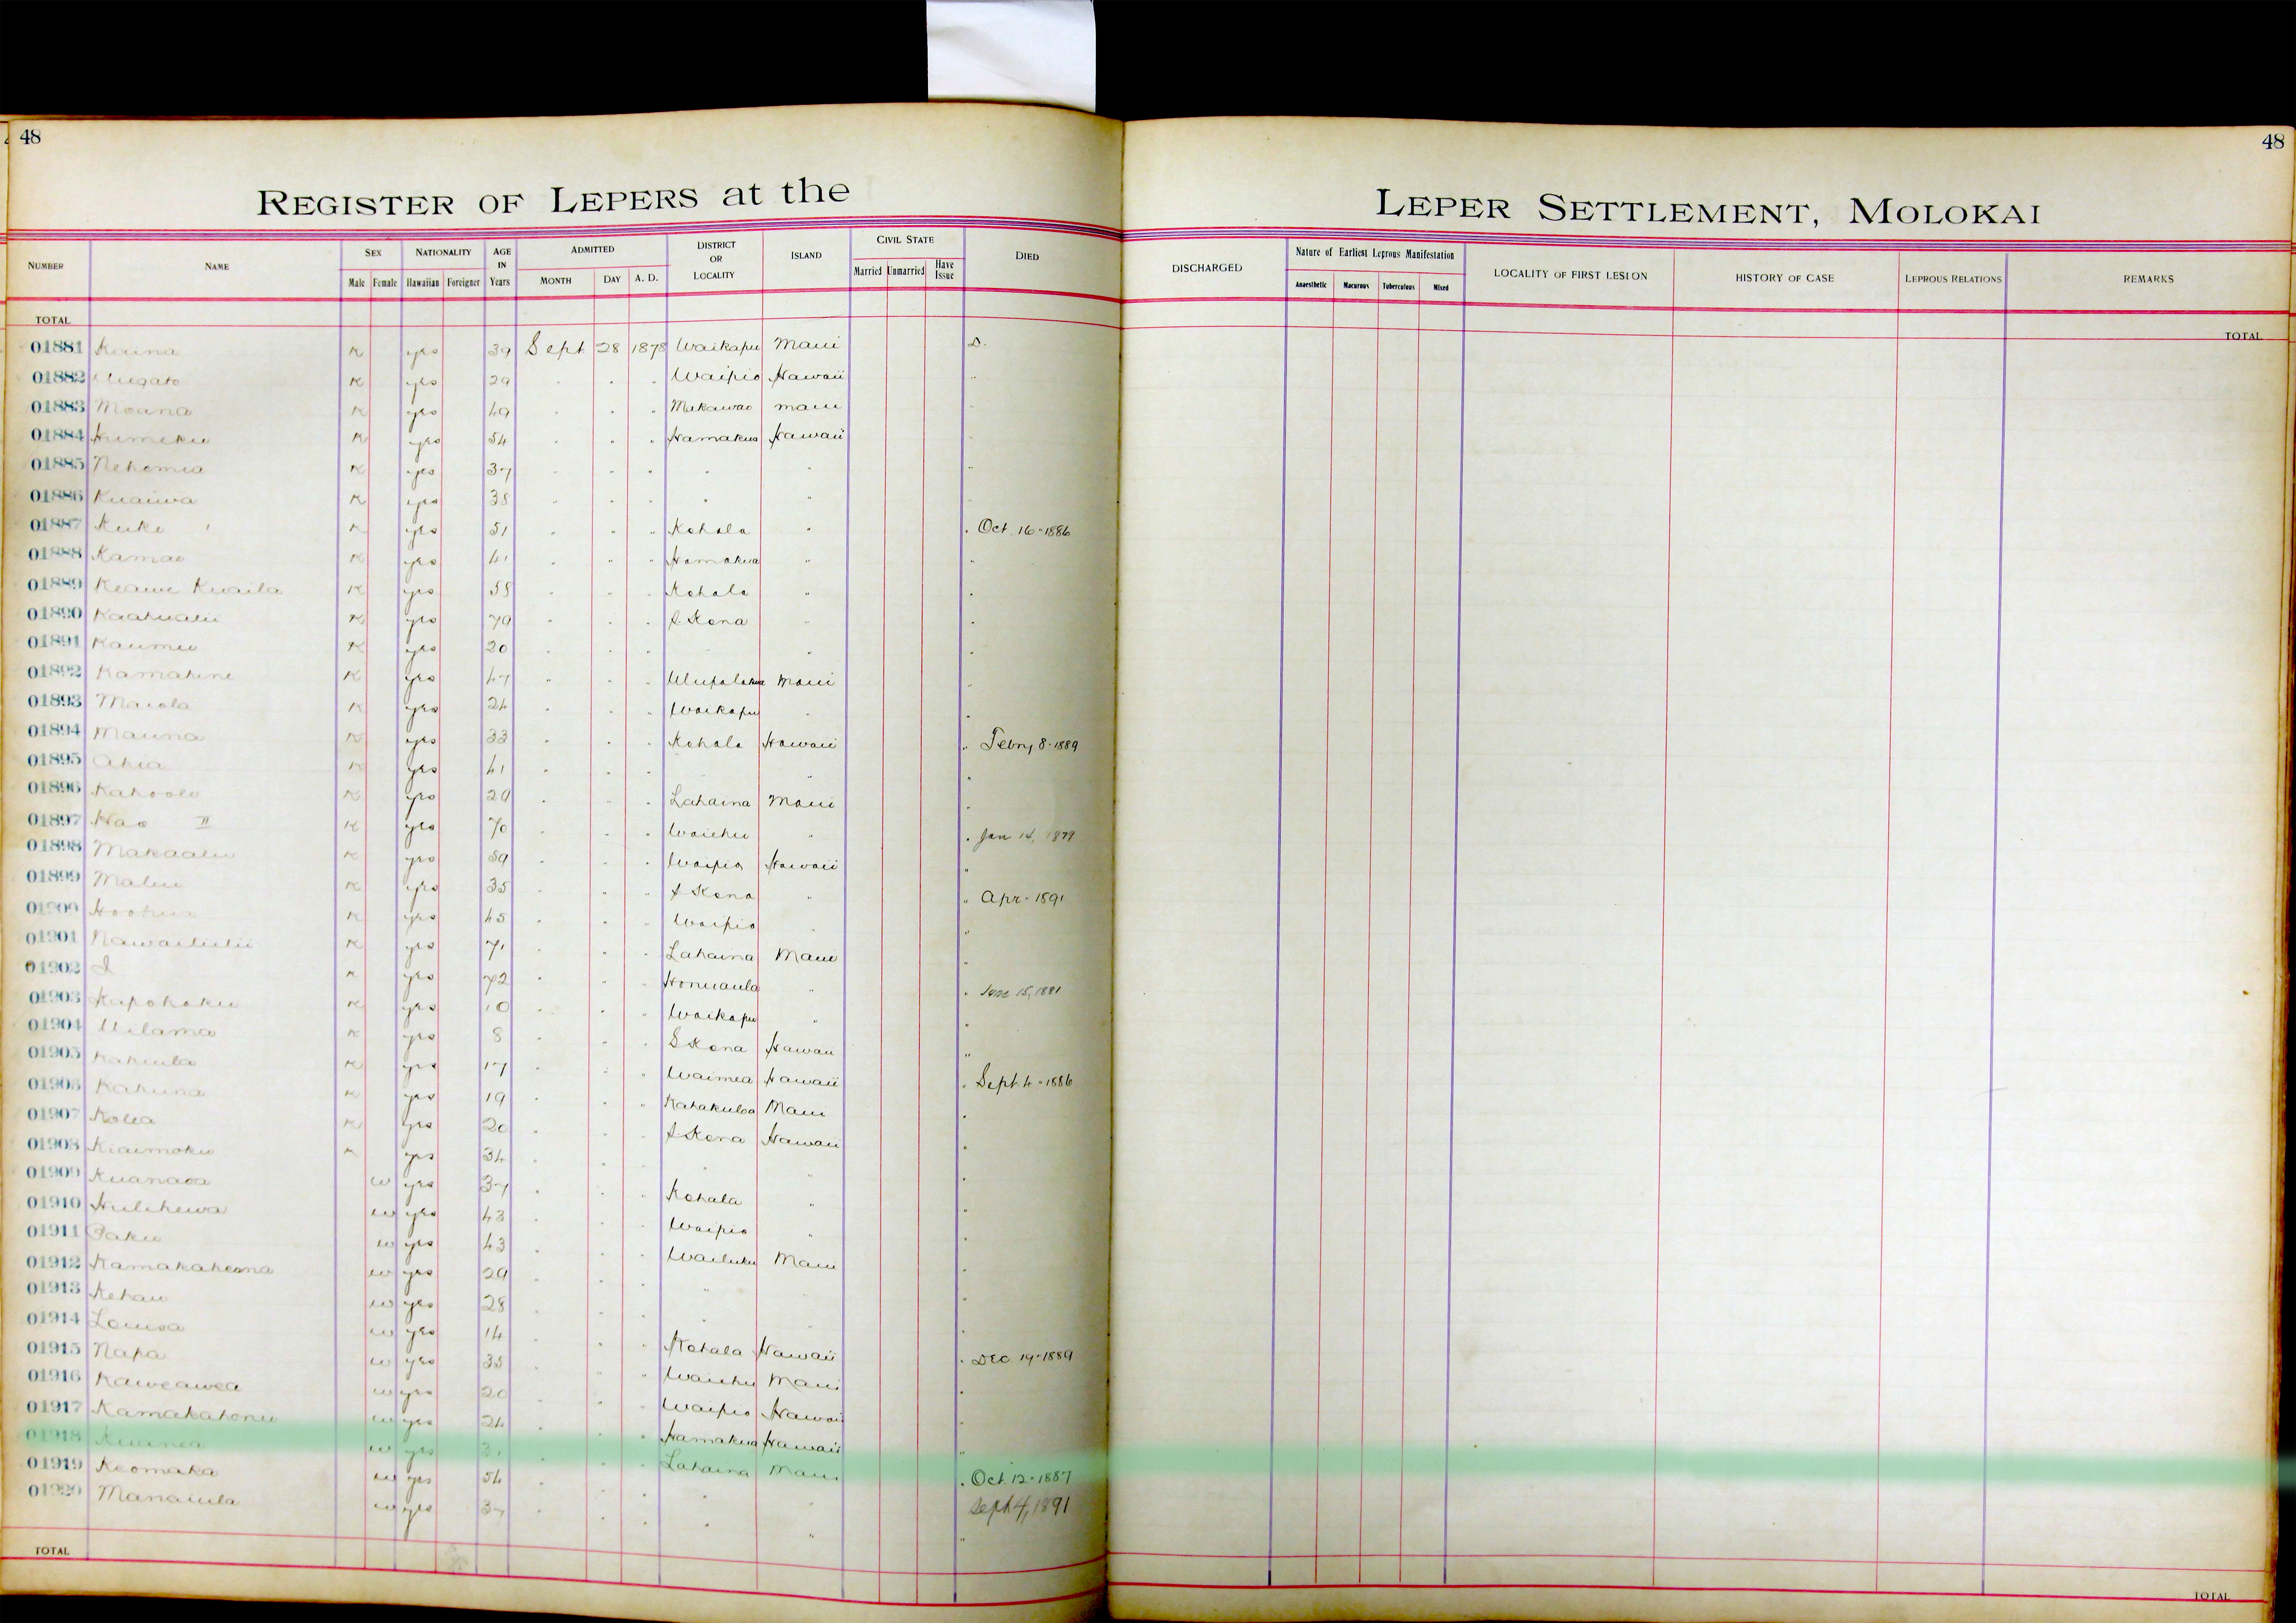 48
48
REGISTER OF LEPERS at the LEPER SETTLEMENT, MOLOKAI
NUMBER NAME SEX NATIONALITY AGE IN Years ADMITTED DISTRICT OR LOCALITY ISLAND CIVIL STATE DIED DISCHARGED Nature of Earliest Leprous Manifestation LOCALITY OF FIRST LESION HISTORY OF CASE LEPROUS RELATIONS REMARKS
Male Female Hawaiian Foreigner MONTH DAY A. D. Married Unmarried Have Issue Anaesthetic Macurous Tuberculous Mixed
TOTAL TOTAL
01881 yes 39 Sept 28 1878 Waikapu Maui D.
01882 yes 29 Waipio Hawaii
01883 Moana yes 49 Makawao Maui
01884 Humeku yes 54 Hamakua Hawaii
01885 Nehemia yes 37
01886 Kuaiwa yes 38
01887 Kuke yes 51 Kohala " Oct. 16 - 1886
01888 Kamao yes 41 Hamakua "
01889 Keawe Kuaila yes 58 Kohala "
01890 Kaahualii yes 79 Kona
01891 Kaumu yes 20
01892 Kamahine yes 47 Ulupalakua Maui
01893 Maiola yes 24 Waikapu
01894 Mauna yes 33 Kohala Hawaii " Febry 8 - 1889
01895 Ahia yes 41 "
01896 Kahoolo yes 29 Lahaina Maui
01897 Hao II yes 70 Waiehu " Jan 14, 1879
01898 Makaalu yes 59 Waipio Hawaii
01899 yes 35 Kona " " Apr - 1891
01900 Hoohua yes 45 Waipio
01901 Nawailiilii yes 71 Lahaina Maui
01902 I yes 72 Honuaula " June 15, 1881
01903 Kapohaku yes 10 Waikapu "
01904 Wilama yes 8 S Kona Hawaii
01905 Kahuila yes 17 Waimea Hawaii " Sept. 4 - 1886
01906 Kahuna yes 19 Kahakuloa Maui
01907 Kolea yes 20 Kona Hawaii
01908 Kiaimoku yes 34
01909 Kuanaoa w yes 37 Kohala "
01910 Hulihewa w yes 43 Waipio "
01911 Paku w yes 43 Wailuku Maui
01912 w yes 29 "
01913 Kehau w yes 28
01914 Louisa w yes 14 Kohala Hawaii . Dec. 19 - 1889
01915 Napa w yes 35 Waiehu Maui
01916 Kaweawea w yes 20 Waipio Hawaii
01917 Kamakahonu w yes 24 Hamakua Hawaii
01918 w yes Lahaina Maui . Oct. 12 - 1887
01919 Keomaka w yes 54 Sept 4, 1891
01920 Manaiula w yes 37 "
TOTAL TOTAL